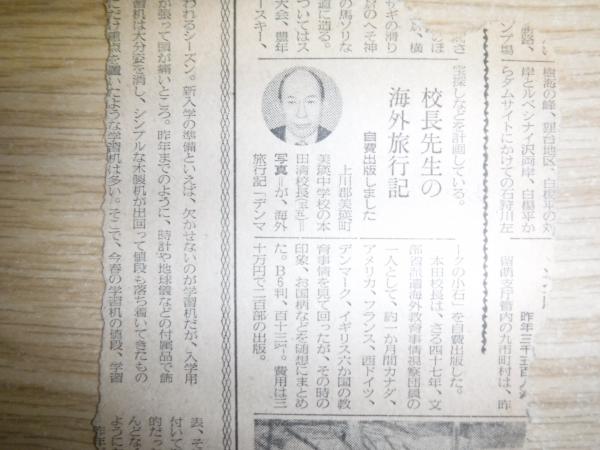 校長先生の
海外旅行記
自費出版しました
上川郡美瑛町
美瑛中学校の本
田清校長
写真＝が、海外
旅行記「デンマ
ークの小石」を自費出版した。
本田校長は、さる四十七年、文
部省派遣海外教育事情視察団員の
一人として、約一か月間カナダ、
アメリカ、フランス、西ドイツ、
デンマーク、イギリス六か国の教
育事情を見て回ったが、その時の
印象、お国柄などを随想にまとめ
た。B6判、百十三㌻。費用は三
十万円で二百部の出版。
宝探しなどを計画している。
樹海の峰、
岸とルベシナイ沢両岸、白楊平か
らダムサイトにかけての石狩川左
ンプ場
昨年三千五百人
留萌支庁管内の九市町村は、昨
サギの滑り
のへそ神
の馬ソリな
道に造る。
ついてはス
大会、豊年
ースキー、
われるシーズン。新入学の準備といえば、欠かせないのが学習机だが、入学用
が張って頭が痛いところ。昨年までのように、時計や地球儀などの付属品で飾
習机は大分姿を消し、シンプルな木製机が出回って値段も落ち着いてきたもの
に重点を置いたような学習机は多い。そこで、今春の学習机の値段、学習
表、そ
付いて
的だっ
んどな
ように
昨年